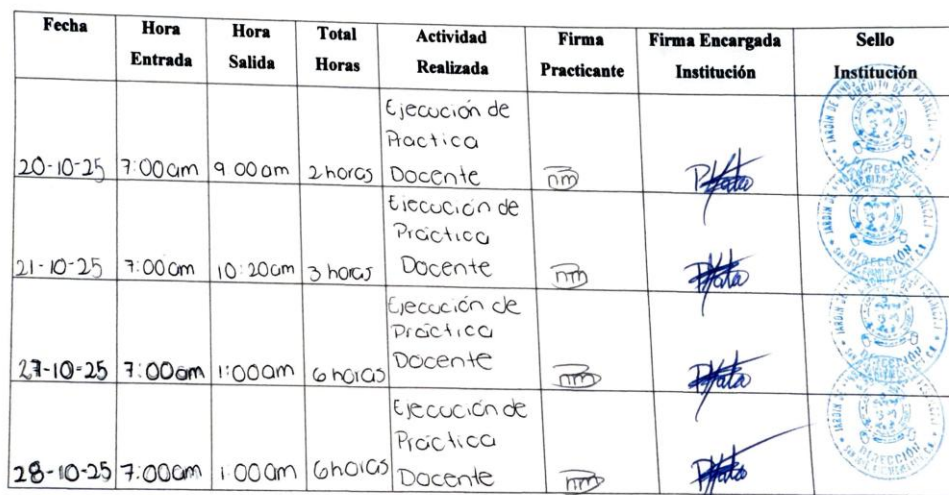 Fecha Hora Entrada Hora Salida Total Horas Actividad Realizada Firma Practicante Firma Encargada Institución Sello Institución
20-10-25 7:00am 9 00am 2 horas Ejecución de Practica Docente nm
21-10-25 7:00am 10:20am 3 horas Ejecución de Práctica Docente nm
27-10-25 7:00am 1:00am 6 horas Ejecución de Práctica Docente nm
28-10-25 7:00am 1:00am 6 horas Ejecución de Práctica Docente nm
DIRECCIÓN
DIRECCIÓN
DIRECCIÓN